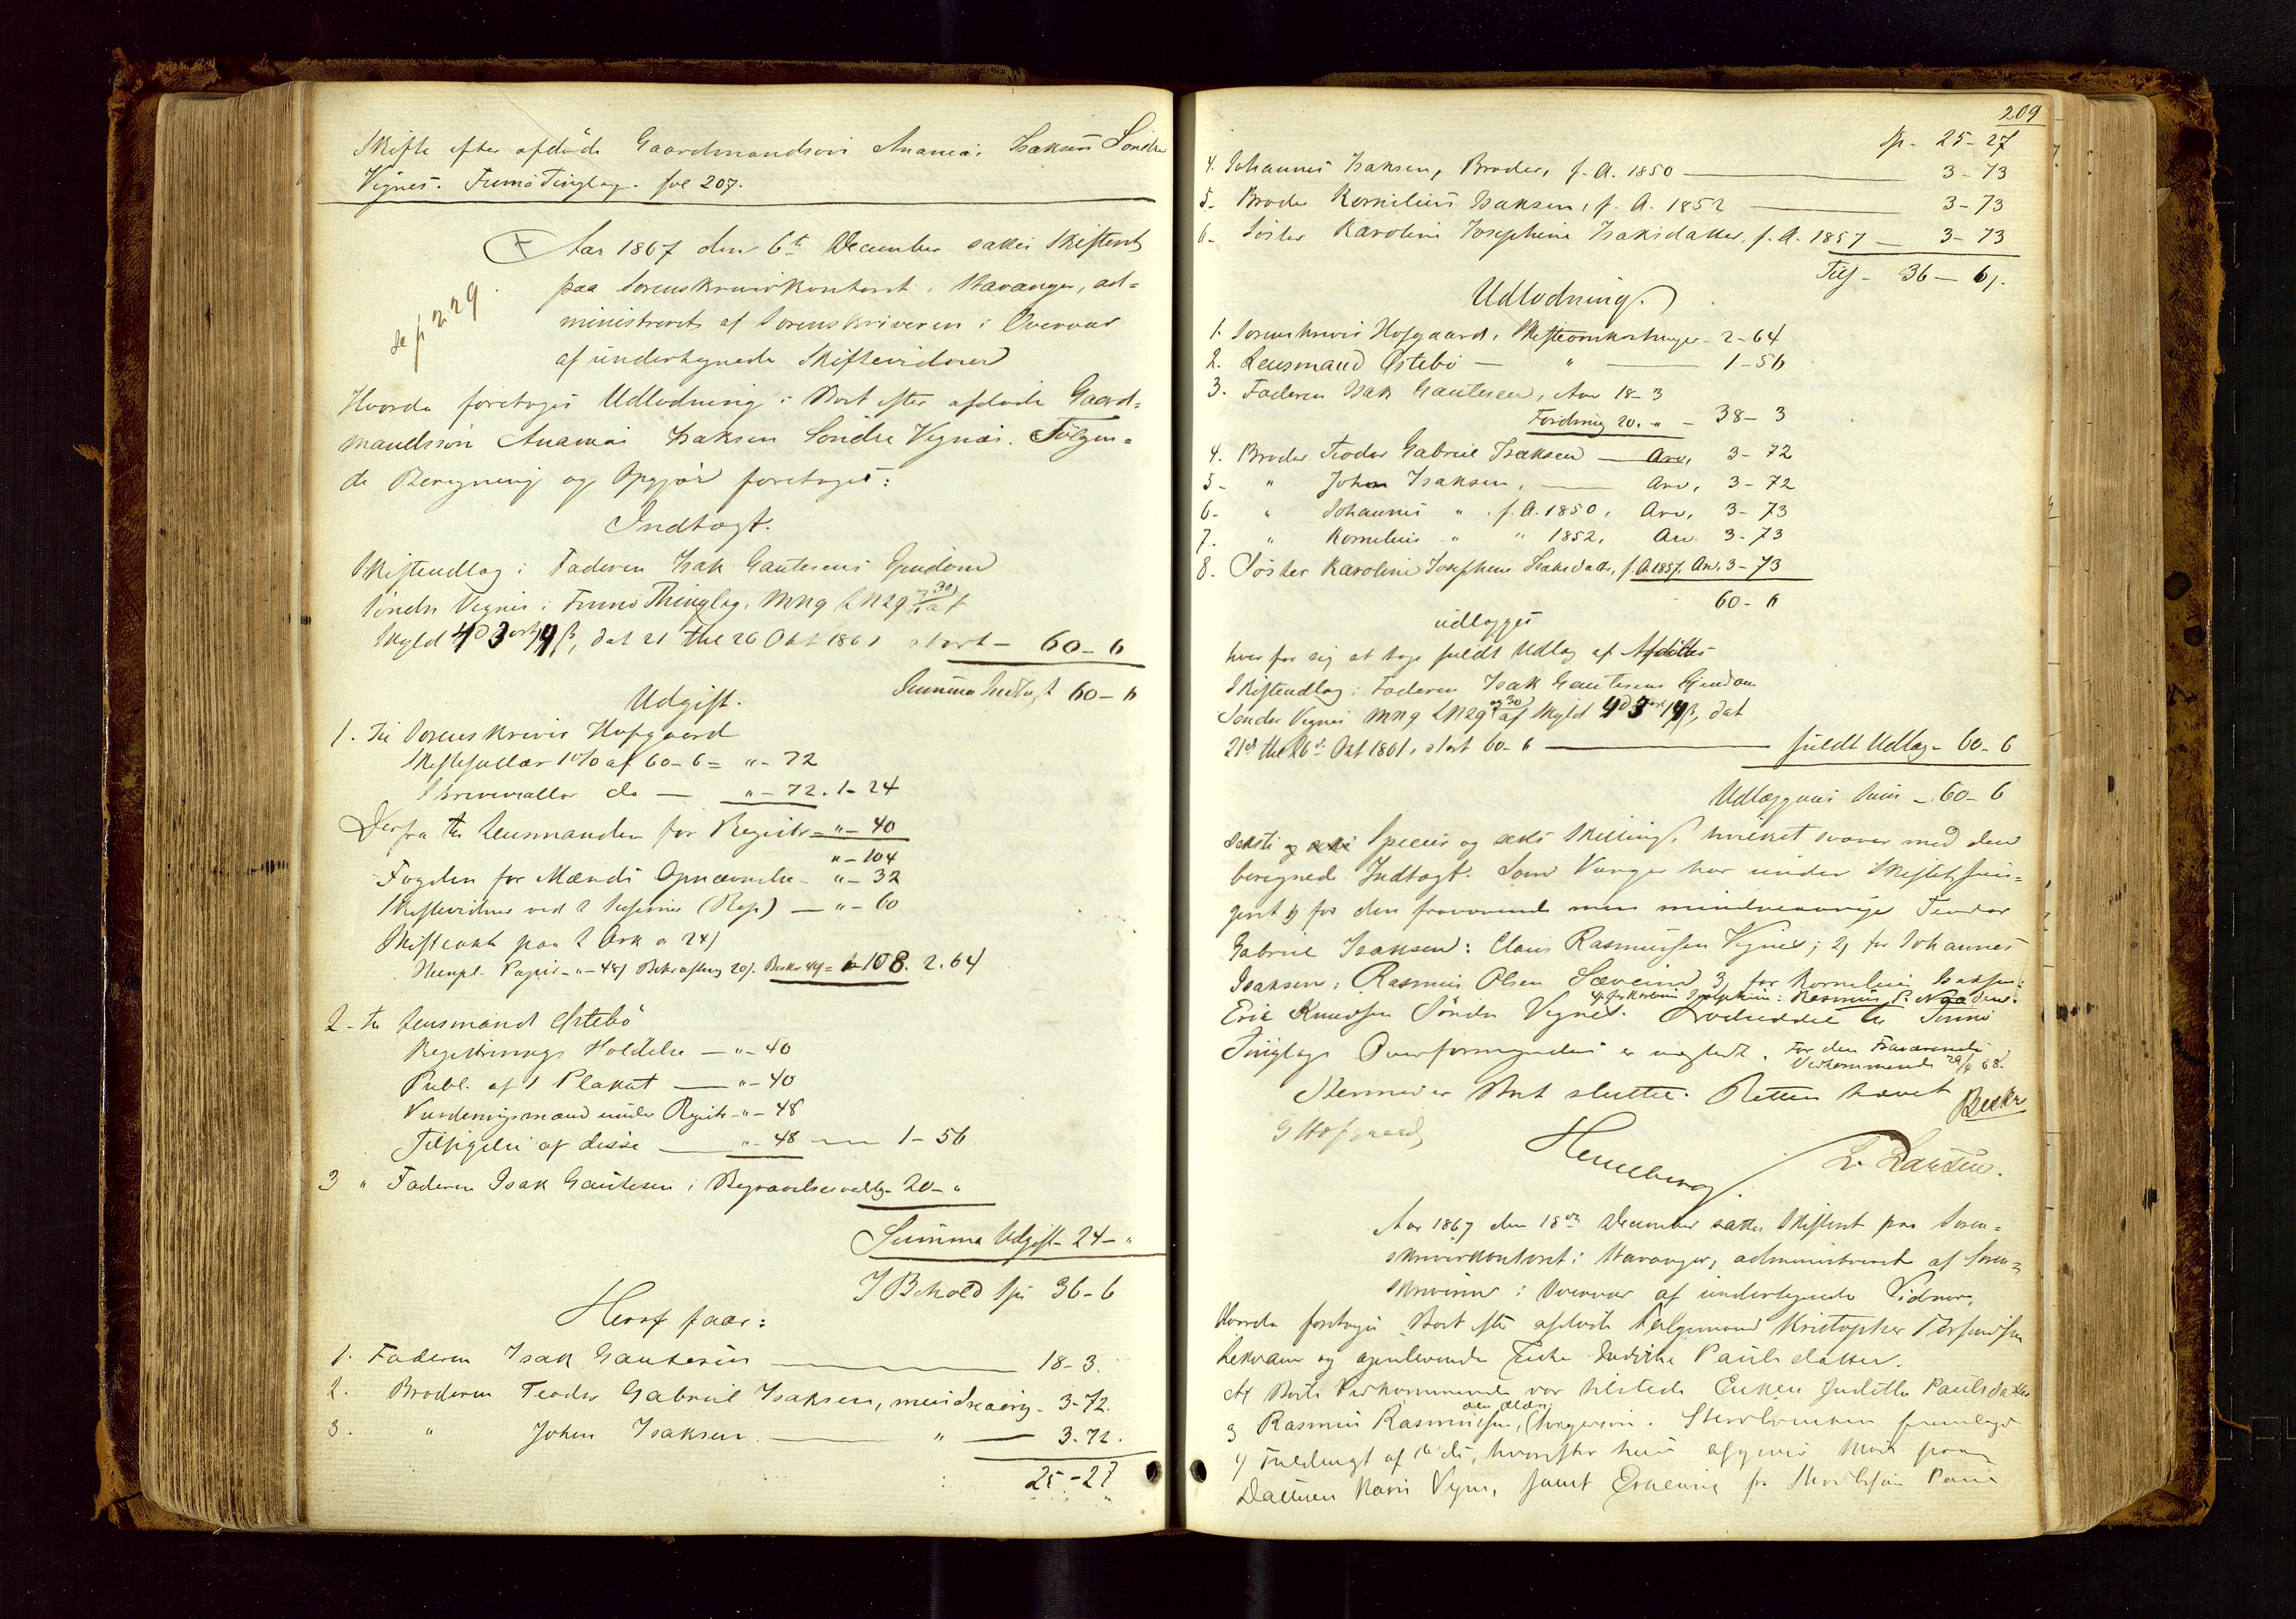 Skifte efter afdøde Gaardmandssøn Ananias Isaksen Søndre
Vignes. Finnø Tinglag. fol 207.
Aar 1867 den 6te December sattes Skifteret
paa Sorenskriverkontoret i Stavanger, ad=
ministreret af Sorenskriveren i Overvær
af undertegnede Skiftevidner
se p 229
Hvorda foretoges Udlodning i Boet efter afdøde Gaard=
mandssøn Ananias Isaksen Søndre Vignes. Følgen=
de Beregning og Opgjør foretoges:
Indtægt.
Skifteudlæg i Faderen Isak Gautesens Ejendom
Søndre Vignes i Finnø Thinglag, M N 9 L N 29 og 30 af
Skyld 4 d 3 ort 19 ß, dat 21 thl 26 Okt 1861 stort – 60–6
Summa Indtægt 60–6
Udgift.
1. Til Sorenskriver Hofgaard
Skiftesallær 1% af 60–6 = „–72
Skriversallær do — „–72. 1–24
Derfra til Lensmanden for Registr – „–40
„–104
Fogden for Mænds Opnævnelse – „–32
Skiftevidner ved 2 Sessioner (Rep) — „–60
Skifteakt paa 2 Ark a 24ß
Stempl. Papir – „–48ß Bekræftning 20ß. – 108. 2.64
2– til Lensmand Østebø
Registrerings Holdelse — „–40
Publ. af 1 Plakat — „–40
Vurderingsmænd under Registr – „–48
Tilsigelse af disse — „–48 — 1–56
3 „ Faderen Isak Gautesen i Begravelsesvedtg – 20–„
Summa Udgift – 24–„
I Behold Sp 36–6
Heraf faar:
1. Faderen Isak Gautesen — 18–3.
2. Broderen Teodor Gabriel Isaksen, mindreaarig – 3–72.
3. „ John Isaksen — „ — 3.72.
25–27
209
Sp – 25–27
4. Johannes Isaksen, Broder, f. A. 1850 — 3–73
5– Broder Kornelius Isaksen, f. A. 1852 — 3–73
6– Søster Karoline Josephine Isaksdatter, f. A. 1857 — 3–73
Tils – 36–6.
Udlodning.
1. Sorenskriver Hofgaard, Skifteomkostninger – 2–64
2. Lensmand Østebø — „ — 1–56
3. Faderen Isak Gautesen, Arv 18–3
Fordring 20.„ – 38–3
4. Broder Teodor Gabriel Isaksen — Arv, 3–72
5– „ John Isaksen, — Arv, 3–72
6– „ Johannes „ f. A. 1850, Arv, 3–73
7. „ Kornelius „ „ 1852, Arv. 3–73
8. Søster Karoline Josephine Isaksdatter, f. A. 1857, Arv, 3–73
60–6
udlægges
hver for sig at tage fuldt Udlæg af Afdødes
Skifteudlæg i Faderen Isak Gautesens Ejendom
Søndre Vignes M N 9 L N 29 og 30 af Skyld 4 d 3 ort 19 ß, dat
21de thl 26de Okt 1861, stort 60–6 — fuldt Udlæg – 60–6
Udlæggenes Sum – 60–6
seksti Species og seks Skilling, hvilket svarer med den
beregnede Indtægt. Som Værger har under Skiftet fun=
geret 1) for den fraværende men mindreaarige Teodor
Gabriel Isaksen: Claus Rasmussen Vignes; 2, for Johannes
Isaksen: Rasmus Olsen 3, for Kornelius Isaksen:
4, for Karoline Josephine: Rasmus P.
Erik Knudsen Søndre Vignes. Lodseddel til Finnø
Tinglags Overformynderi er udstedt. For den Fraværende
Vedkommende 29/4 68.
Hermed er Boet sluttet. Retten hævet
Beskr
G Hofgaard
Henneberg.
L. Larsen.
Aar 1867 den 18de December sattes Skifteret paa Soren=
skriverkontoret i Stavanger, administreret af Soren=
skriveren i Overvær af undertegnede Vidner,
Hvorda foretoges Boet efter afdøde Kristopher
og gjenlevende Enke Paulsdatter.
Af Boets Vedkommende var tilstede Enken Judithe Paulsdatter
og Rasmus Rasmussen, den ældre, Svigersøn. fremlagde
1) Fuldmagt af hvorefter hun afgiver Møde paa
Datteren Vegne, samt Erklæring fra